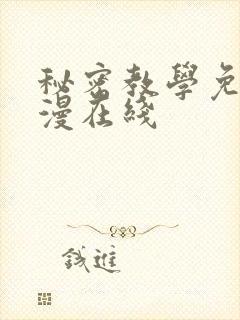 秘密教學免
漫在綫
錢進